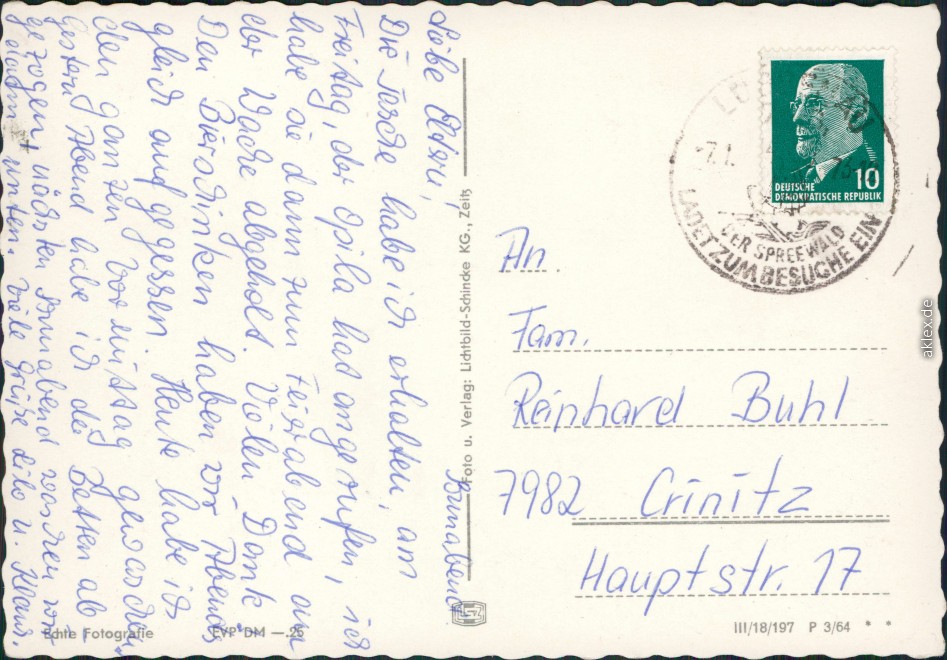 Sonnabend
Liebe
Die Tasche habe ich erhalten, am
Freitag, der Opila hat angerufen, ich
habe sie dann zum Feierabend an
der Wache abgeholt. Vielen Dank
Den Bierschinken haben wir Abends
gleich aufgegessen. Heute habe ich
den ganzen Vormittag gewaschen
gestern Abend habe ich die Betten ab
gezogen nächsten Sonnabend waschen wir
unten. Viele Grüße Lilo u. Klaus.
Foto u. Verlag: Lichtbild-Schincke KG., Zeitz
Echte Fotografie
EVP DM —.25
DEUTSCHE
DEMOKRATISCHE REPUBLIK
10
DER SPREEWALD
LADET ZUM BESUCHE EIN
An.
Fam.
Reinhard Buhl
7982 Crinitz
Hauptstr. 17
III/18/197 P 3/64 * *
aklex.de